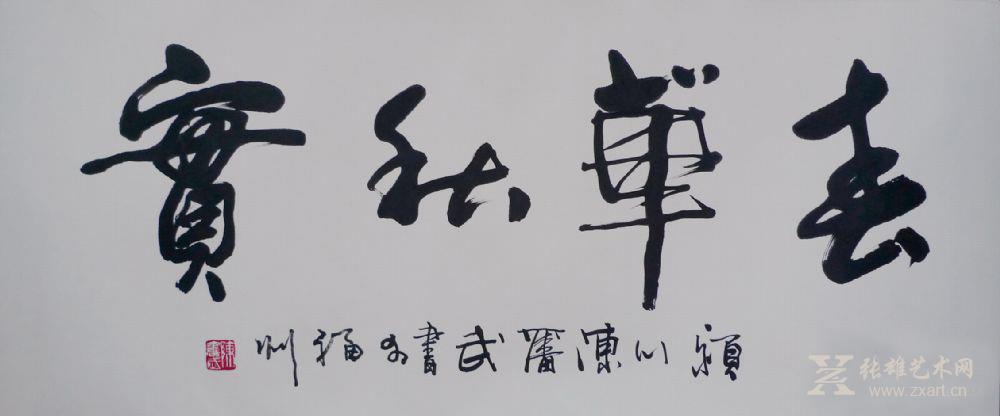 春華秋實
潁川陳奮武書於福州
张雄艺术网
www.zxart.cn